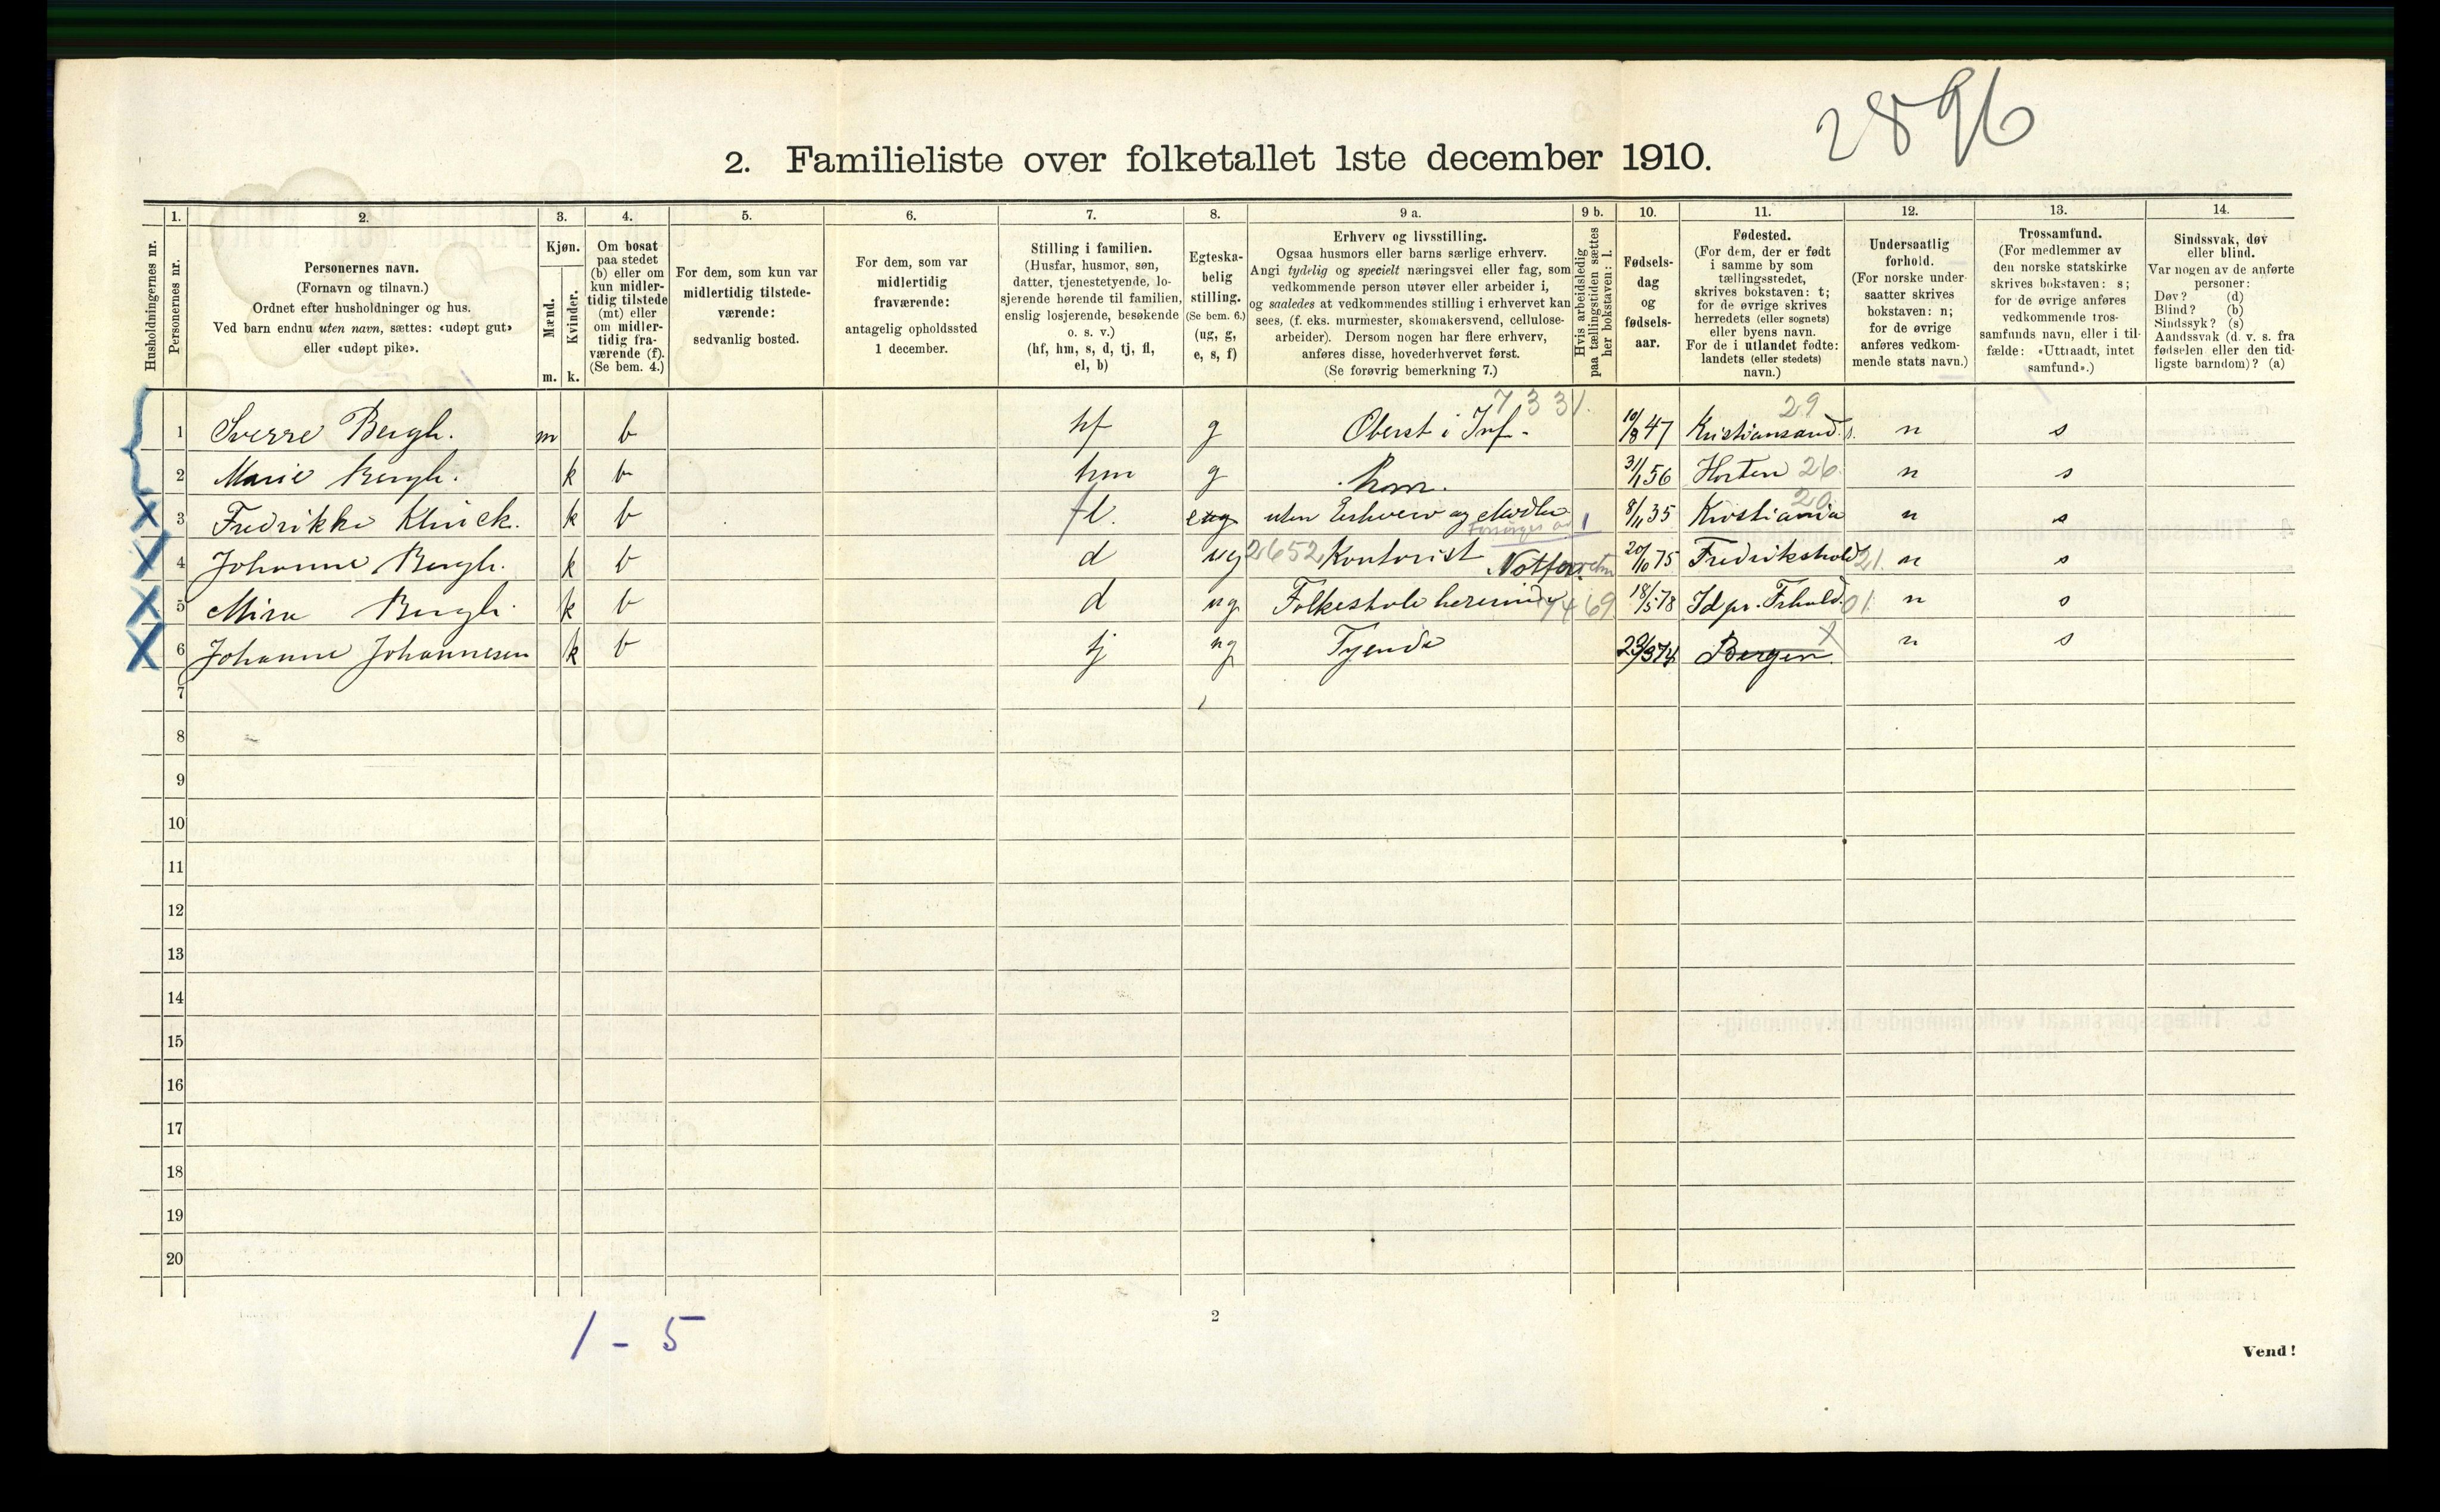 2896
2. Familieliste over folketallet 1ste december 1910.
1. 2. 3. 4. 5. 6. 7. 8. 9 a. 9 b. 10. 11. 12. 13. 14.
Husholdningernes nr.
Personernes nr.
Personernes navn.
(Fornavn og tilnavn.)
Ordnet efter husholdninger og hus.
Ved barn endnu uten navn, sættes: «udøpt gut»
eller «udøpt pike».
Kjøn.
Mænd.
Kvinder.
m. k.
Om bosat
paa stedet
(b) eller om
kun midler-
tidig tilstede
(mt) eller
om midler-
tidig fra-
værende (f).
(Se bem. 4.)
For dem, som kun var
midlertidig tilstede-
værende:
sedvanlig bosted.
For dem, som var
midlertidig
fraværende:
antagelig opholdssted
1 december.
Stilling i familien.
(Husfar, husmor, søn,
datter, tjenestetyende, lo-
sjerende hørende til familien,
enslig losjerende, besøkende
o. s. v.)
(hf, hm, s, d, tj, fl,
el, b)
Egteska-
belig
stilling.
(Se bem. 6.)
(ug, g,
e, s, f)
Erhverv og livsstilling.
Ogsaa husmors eller barns særlige erhverv.
Angi tydelig og specielt næringsvei eller fag, som
vedkommende person utøver eller arbeider i,
og saaledes at vedkommendes stilling i erhvervet kan
sees, (f. eks. murmester, skomakersvend, cellulose-
arbeider). Dersom nogen har flere erhverv,
anføres disse, hovederhvervet først.
(Se forøvrig bemerkning 7.)
Hvis arbeidsledig
paa tællingstiden sættes
her bokstaven: l.
Fødsels-
dag
og
fødsels-
aar.
Fødested.
(For dem, der er født
i samme by som
tællingsstedet,
skrives bokstaven: t;
for de øvrige skrives
herredets (eller sognets)
eller byens navn.
For de i utlandet fødte:
landets (eller stedets)
navn.)
Undersaatlig
forhold.
(For norske under-
saatter skrives
bokstaven: n;
for de øvrige
anføres vedkom-
mende stats navn.)
Trossamfund.
(For medlemmer av
den norske statskirke
skrives bokstaven: s;
for de øvrige anføres
vedkommende tros-
samfunds navn, eller i til-
fælde: «Uttraadt, intet
samfund».)
Sindssvak, døv
eller blind.
Var nogen av de anførte
personer:
Døv? (d)
Blind? (b)
Sindssyk? (s)
Aandssvak (d. v. s. fra
fødselen eller den tid-
ligste barndom)? (a)
7331. 29
1 Sverre Bergh. m b hf g Oberst i Inf. 10/8 47 Kristiansand s. n s
2 Marie Bergh. k b hm g hm. 31/1 56 Horten 26 n s
20
3 Fredrikke Klinck. k b fl. e ug uten Erhverv og Midler 1 8/11 35 Kristiania n s
Forsørges av
4 Johanne Bergh. k b d ug 2652 Kontorist 20/10 75 Fredrikshald 21. n s
5 Mira Bergh. k b d ug Folkeskole lærerinde 7469 18/5 78 Id pr. Frhald. 01. n s
6 Johanne Johannesen k b tj ug Tyende 23/3 74 Bergen. n s
7
8
9
10
11
12
13
14
15
16
17
18
19
20
1 - 5
2
Vend!